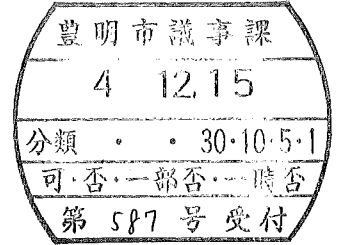 豊明市議事課
4 12.15
分類 ・ ・ 30・10・5・1
可・否・一部否・一時否
第 587 号 受付